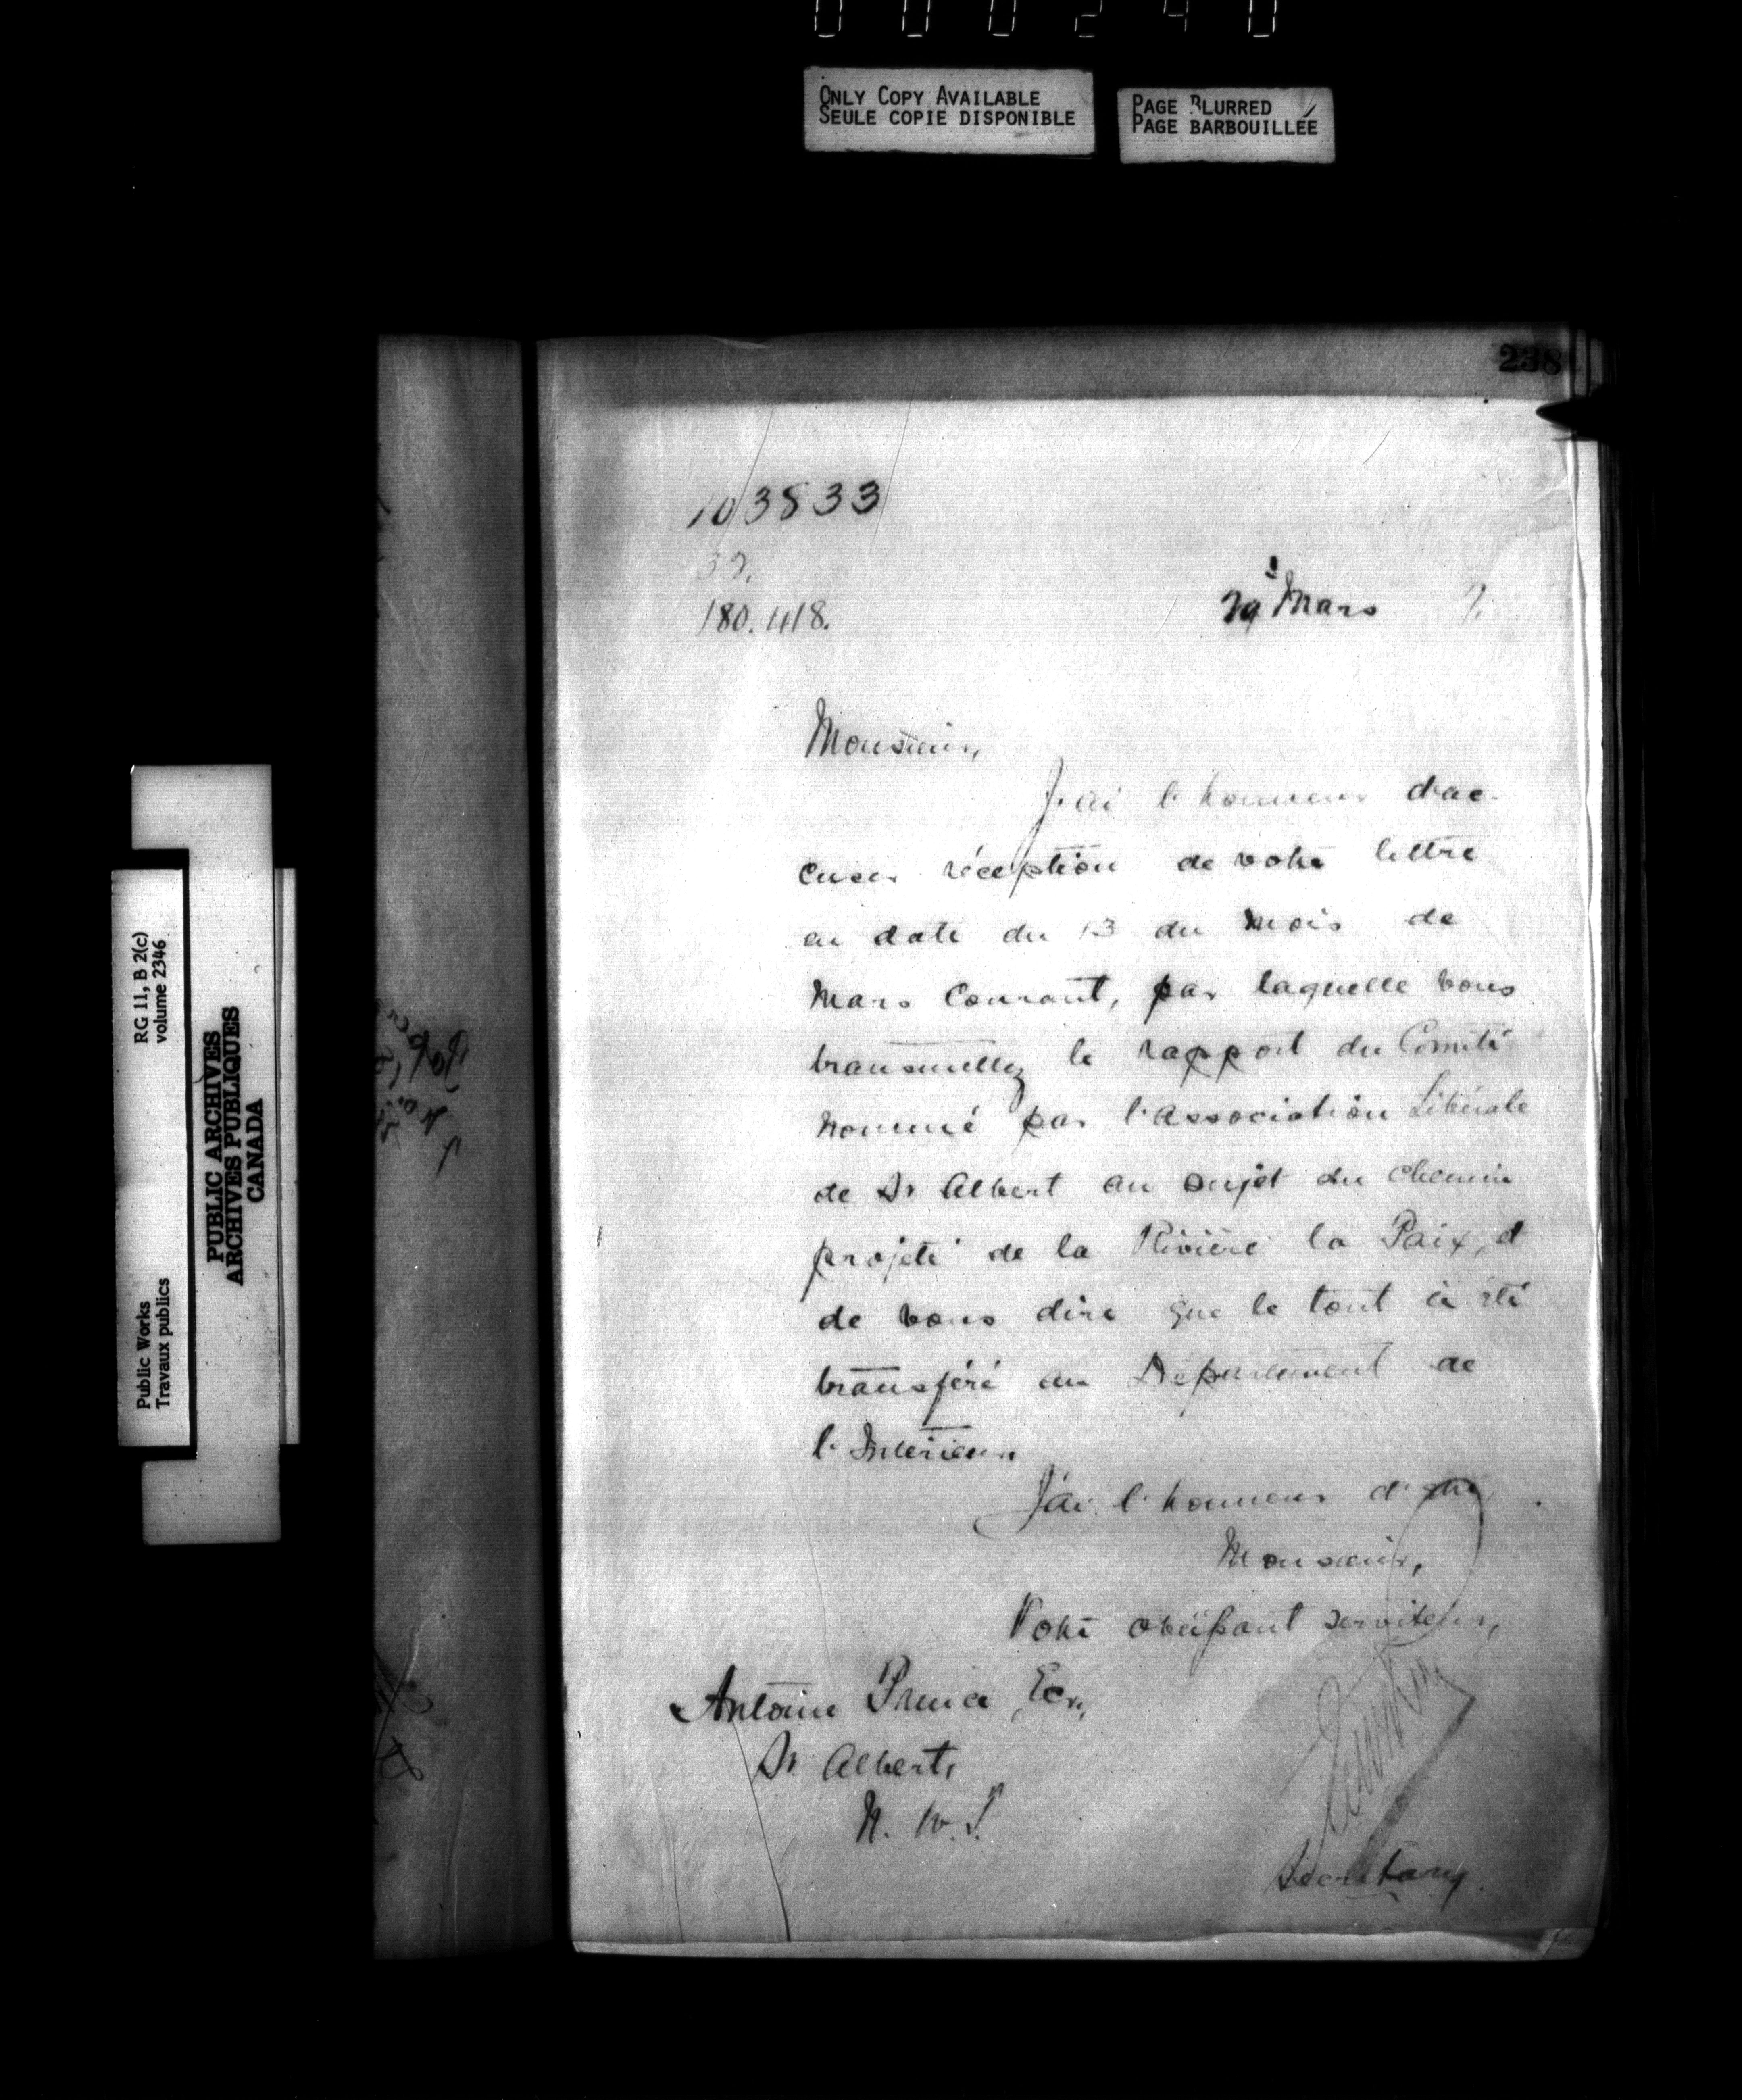 000240
ONLY COPY AVAILABLE
SEULE COPIE DISPONIBLE
PAGE BLURRED
PAGE BARBOUILLÉE
RG 11, B 2(c)
volume 2346
Public Works
Travaux publics
PUBLIC ARCHIVES
ARCHIVES PUBLIQUES
CANADA
238
103833
39.
180.418.
Mars
Monsieur,
J'ai l'honneur d'ac-
cuser réception de votre lettre
en date du 13 du mois de
Mars Courant, par laquelle vous
transmettez le rapport du Comité
nommé par l'Association Libérale
de St Albert au sujet du chemin
projeté de la Rivière la Paix, et
de vous dire que le tout a été
transféré au Département de
l'Intérieur.
J'ai l'honneur d'être
Monsieur,
Votre obéissant serviteur,
Antoine Prince, Ecr.,
St Albert,
N. W. T.
Secretary.